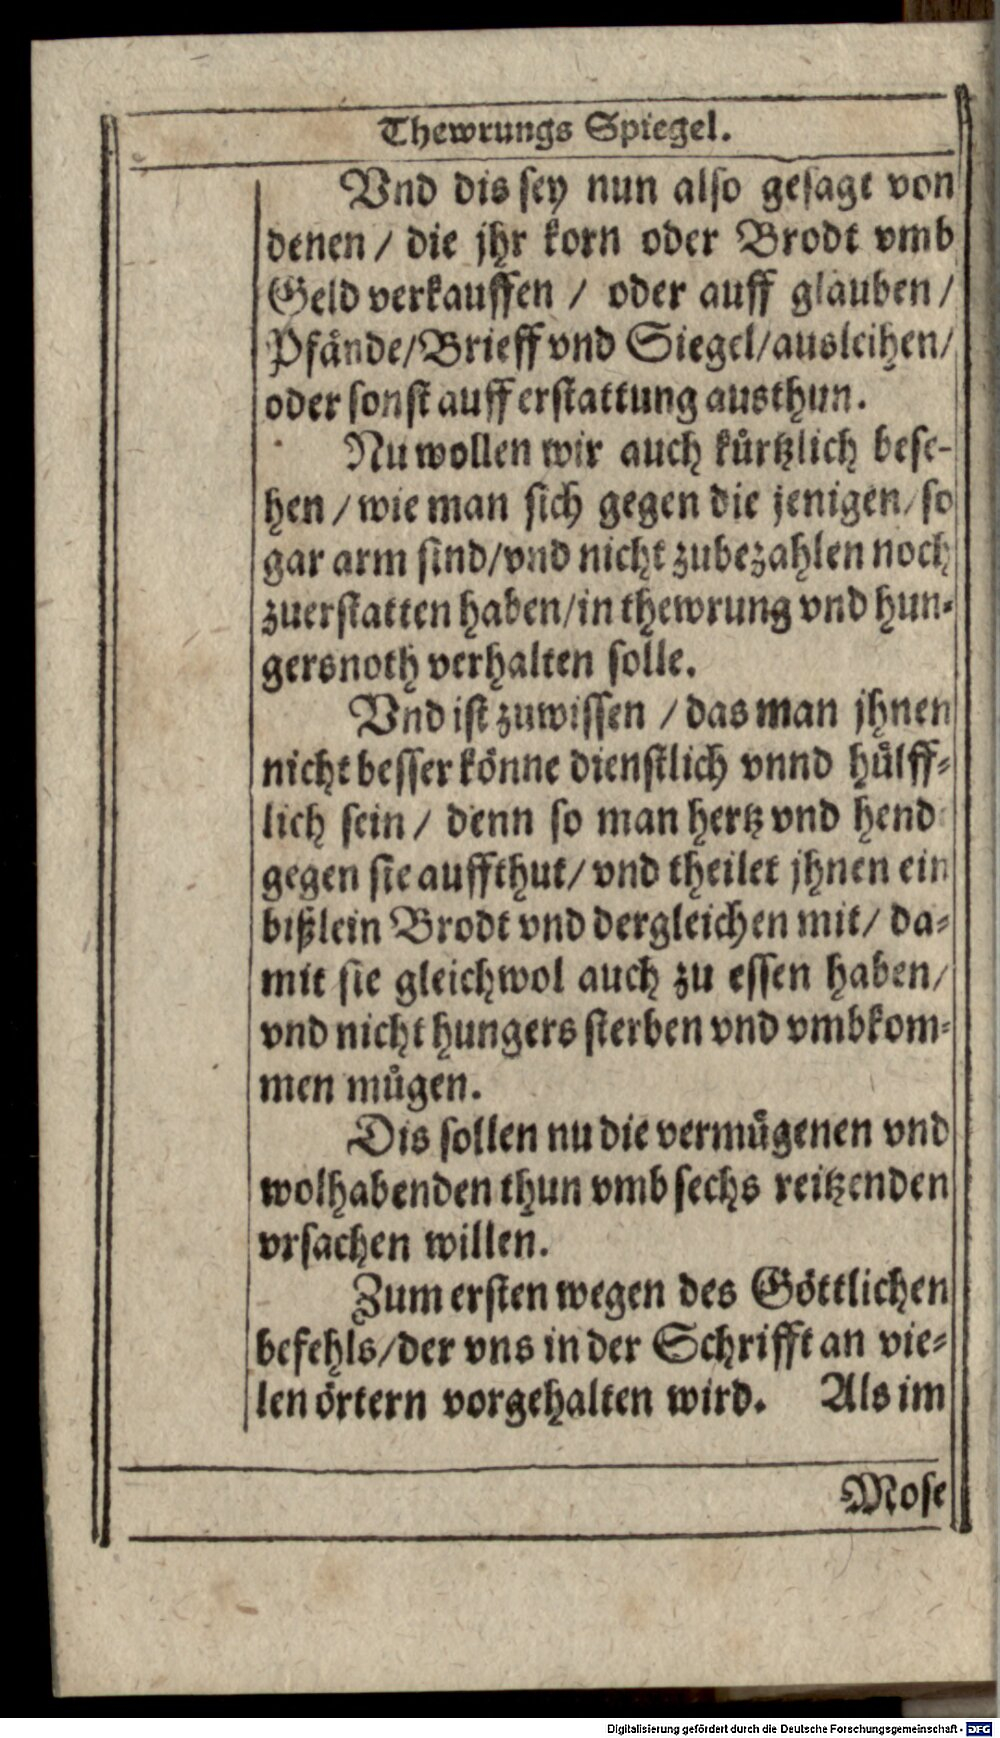 Thewrungs Spiegel.
Vnd dis sey nun also gesagt von
denen / die jhr korn oder Brodt vmb
Geld verkauffen / oder auff glauben /
Pfånde/Brieff vnd Siegel/ausleihen/
oder sonst auff erstattung austhun.
Nu wollen wir auch kůrtzlich bese-
hen / wie man sich gegen die jenigen/ so
gar arm sind/vnd nicht zubezahlen noch
zuerstatten haben/in thewrung vnd hun-
gersnoth verhalten solle.
Vnd ist zuwissen / das man jhnen
nicht besser könne dienstlich vnnd hůlff-
lich sein / denn so man hertz vnd hend
gegen sie auffthut/ vnd theilet jhnen ein
bißlein Brodt vnd dergleichen mit/ da-
mit sie gleichwol auch zu essen haben/
vnd nicht hungers sterben vnd vmbkom-
men můgen.
Dis sollen nu die vermůgenen vnd
wolhabenden thun vmb sechs reitzenden
vrsachen willen.
Zum ersten wegen des Göttlichen
befehls/der vns in der Schrifft an vie-
len örtern vorgehalten wird. Als im
Mose
Digitalisierung gefördert durch die Deutsche Forschungsgemeinschaft - DFG